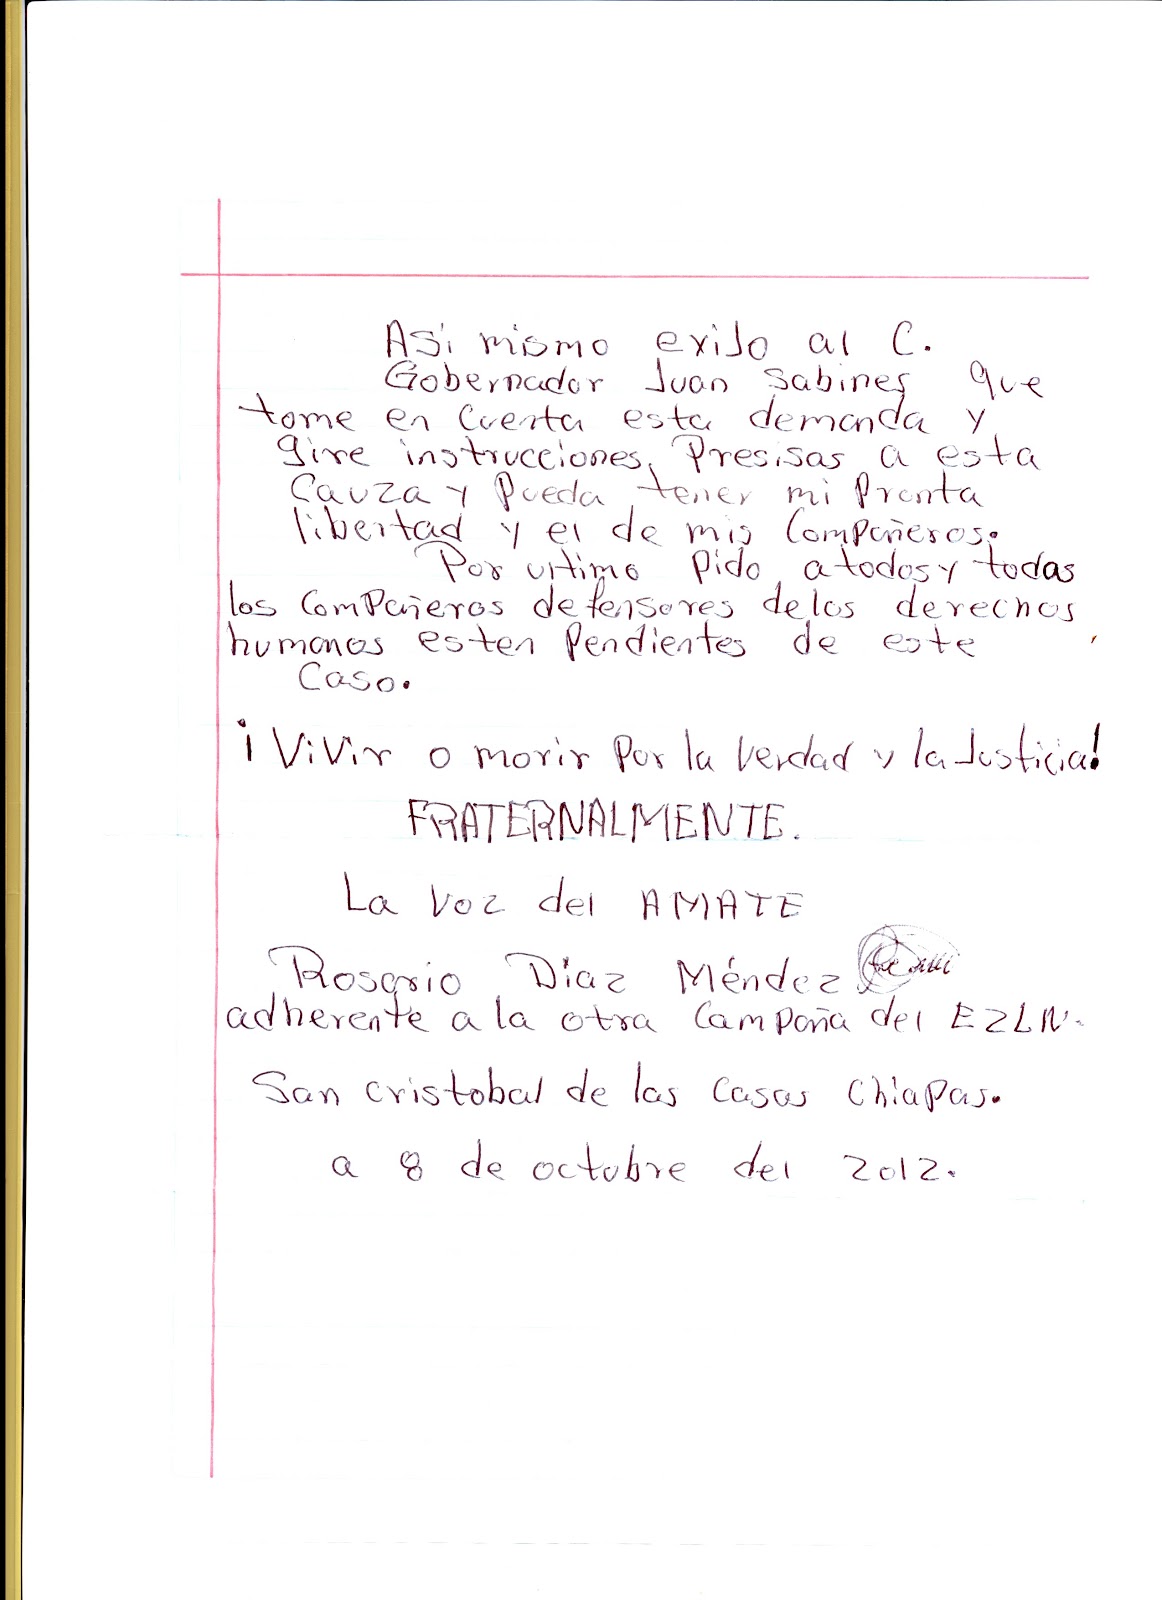 Asi mismo exijo al C.
Gobernador Juan Sabines que
tome en cuenta esta demanda y
gire instrucciones, Presisas a esta
Cauza y pueda tener mi Pronta
libertad y el de mis Compañeros.
Por ultimo Pido a todos y todas
los Compañeros defensores de los derechos
humanos esten Pendientes de este
Caso.
¡ViVir o morir Por la Verdad y la Justicia!
FRATERNALMENTE.
La Voz del AMATE
Rosario Díaz Méndez
adherente a la otra Campaña del EZLN.
San cristobal de las Casas Chiapas.
a 8 de octubre del 2012.